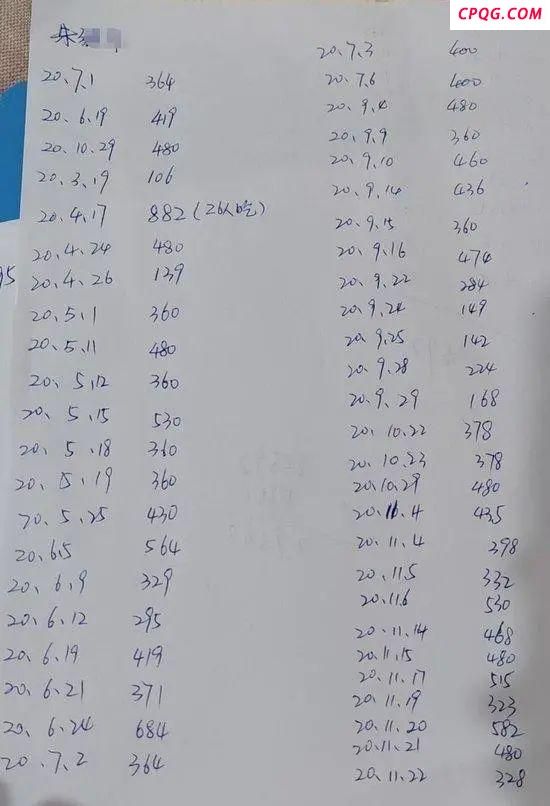 CPQG.COM
朱
20、7、1 364
20、6、19 419
20、10、29 480
20、3、19 106
20、4、17 882（26人吃）
20、4、24 480
95
20、4、26 139
20、5、1 360
20、5、11 480
20、5、12 360
20、5、15 530
20、5、18 360
20、5、19 360
20、5、25 430
20、6、5 564
20、6、9 329
20、6、12 295
20、6、19 419
20、6、21 371
20、6、24 684
20、7、2 364
20、7、3 400
20、7、6 400
20、9、4 480
20、9、9 360
20、9、10 460
20、9、14 436
20、9、15 360
20、9、16 474
20、9、22 284
20、9、24 149
20、9、25 142
20、9、28 224
20、9、29 168
20、10、22 378
20、10、23 378
20、10、29 480
20、11、4 435
20、11、4 398
20、11、5 332
20、11、6 530
20、11、14 468
20、11、15 480
20、11、17 515
20、11、19 323
20、11、20 582
20、11、21 480
20、11、22 328